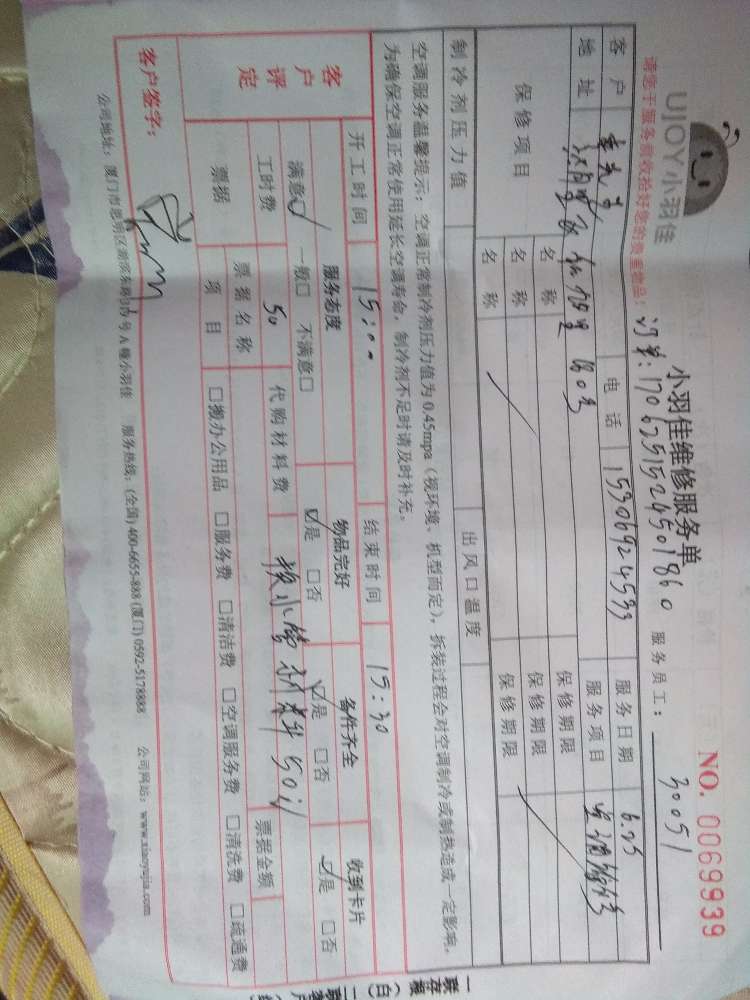 UJOY小羽佳
小羽佳维修服务单
NO. 0069939
请您于服务前收拾好您的贵重物品!
订单:1706251524501860
服务员工: 30051
客户 电话 15306924533 服务日期 6.25
地址 180号 服务项目 空调维修
保修项目 名称 保修期限
名称 保修期限
名称 保修期限
制冷剂压力值 出风口温度
空调服务温馨提示:空调正常制冷剂压力值为0.45mpa(视环境、机型而定),拆装过程会对空调制冷或制热造成一定影响,
为确保空调正常使用延长空调寿命,制冷剂不足时请及时补充。
开工时间 15:00 结束时间 15:30
客户评定 服务态度 物品完好 备件齐全 收到卡片
满意☑ 一般□ 不满意□ ☑是 □否 ☑是 □否 ☑是 □否
工时费 50 代购材料费 换水管材料50元
票据 票据名称 票据金额
项目 □搬办公用品 □服务费 □清洁费 □空调服务费 □清洗费 □疏通费
客户签字:
公司地址:厦门市思明区 号A幢小羽佳 服务热线:(全国) 400-6655-888 (厦门) 0592-5178888 公司网站:www.xiaoyujia.com
一联存根(白)二联客户